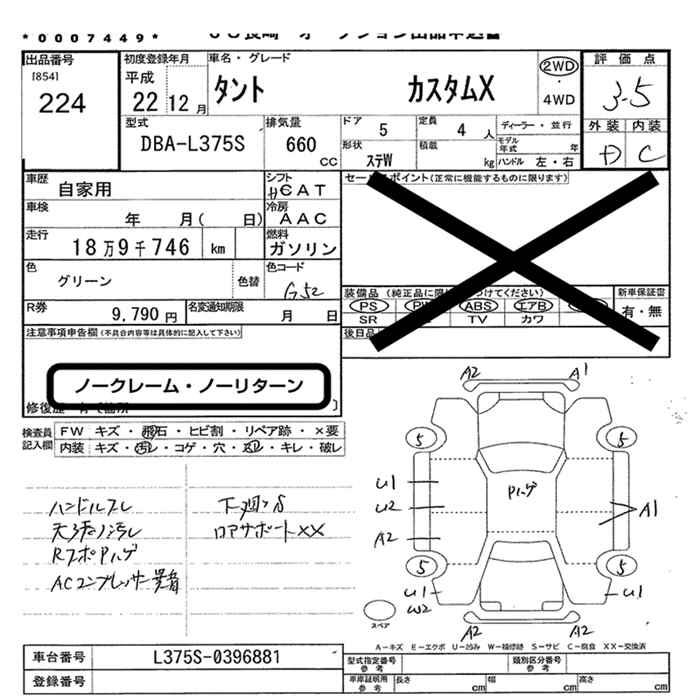 *0007449*
出品番号
[854]
224
初度登録年月
平成
22 12 月
車名・グレード
タント カスタムX
2WD
・
4WD
評価点
3.5
外装 内装
D C
型式
DBA-L375S
排気量
660 CC
ドア
5
定員
4 人
ディーラー・並行
形状
ステW
積載
kg
モデル年式 年
ハンドル 左・右
車歴
自家用
シフト
CAT
車検
年 月( 日)
冷房
AAC
走行
18万9千746 km
燃料
ガソリン
色
グリーン
色替
色コード
G52
R券
9,790 円
名変通知期限
月 日
セールスポイント(正常に機能するものに限ります)
装備品
PS ABS エアB
SR TV カワ
新車保証書
有・無
後日品
注意事項申告欄(不具合内容等は具体的に記入して下さい)
ノークレーム・ノーリターン
検査員
記入欄
FW キズ・飛石・ヒビ割・リペア跡・×要
内装 キズ・汚レ・コゲ・穴・凹・キレ・破レ
ハンドルスレ
天張り汚レ
RフホPハゲ
ACコンプレッサー異音
下廻りS
ロアサポートXX
A2 A1
5 5
U1
U2
A2
Pハゲ
A1
5 5
U1
W2
U1
A2 A2
スペア
A―キズ E―エクボ U―凹み W―補修跡 S―サビ C―腐食 XX―交換済
車台番号
L375S-0396881
登録番号
型式指定番号
参考
類別区分番号
参考
車庫証明用
参考
長さ cm
幅 cm
高さ cm